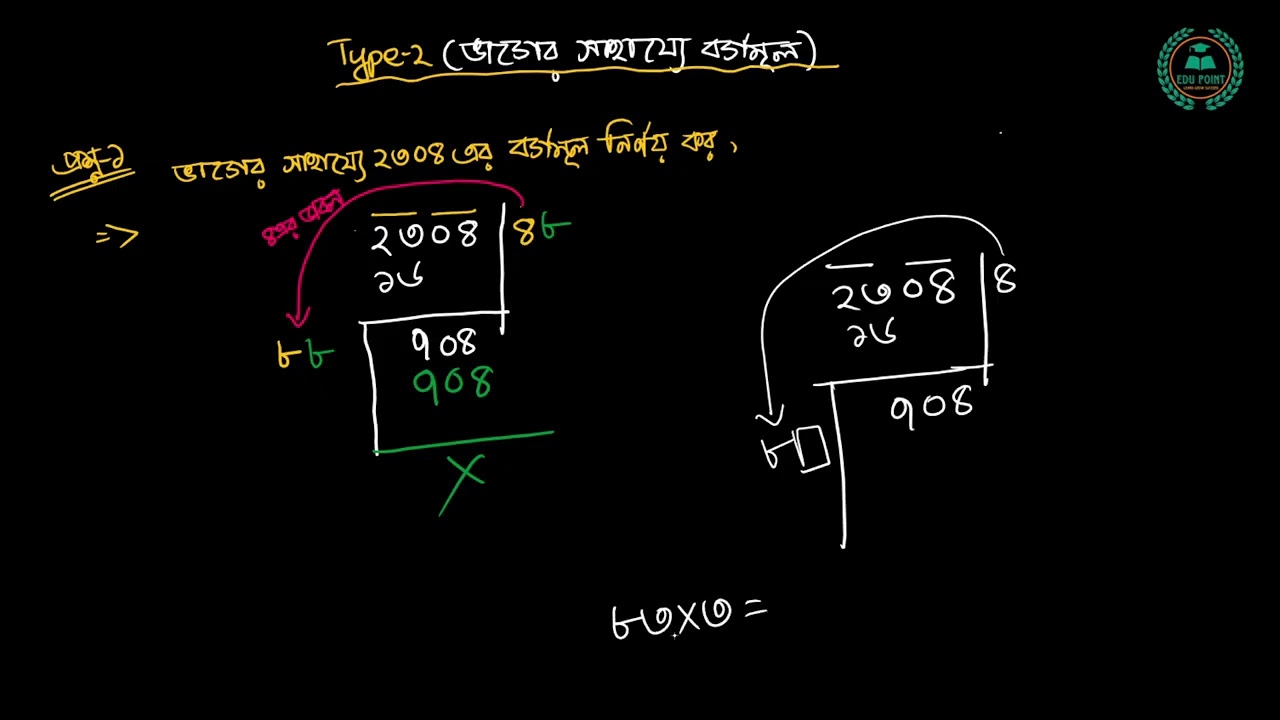 Type-২ (ভাগের সাহায্যে বর্গমূল)
EDU POINT
প্রশ্ন-১ ভাগের সাহায্যে ২৩০৪ এর বর্গমূল নির্ণয় কর,
=> ২৩০৪ ৪৮
১৬
৮৮ ৭০৪
৭০৪
X
২৩০৪ ৪
১৬
৭০৪
৮
৮৩X৩=